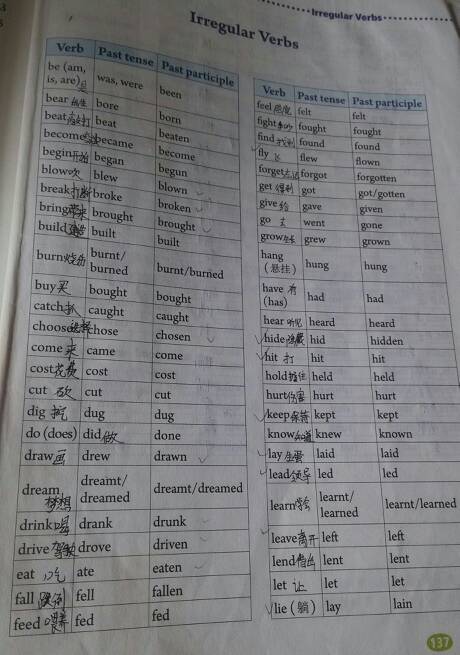 Irregular Verbs
Irregular Verbs
Verb Past tense Past participle
be (am, is, are)是 was, were been
bear bore born
beat beat beaten
become became become
begin开始 began begun
blow吹 blew blown
break打断 broke broken
bring带来 brought brought
build建造 built built
burn burnt/burned burnt/burned
buy买 bought bought
catch caught caught
choose选择 chose chosen
come来 came come
cost花费 cost cost
cut砍 cut cut
dig挖 dug dug
do (does) did做 done
draw画 drew drawn
dream梦想 dreamt/dreamed dreamt/dreamed
drink喝 drank drunk
drive驾驶 drove driven
eat 吃 ate eaten
fall fell fallen
feed fed fed
Verb Past tense Past participle
feel感觉 felt felt
fight fought fought
find找到 found found
fly飞 flew flown
forget忘记 forgot forgotten
get得到 got got/gotten
give给 gave given
go 去 went gone
grow grew grown
hang(悬挂) hung hung
have有(has) had had
hear听见 heard heard
hide隐藏 hid hidden
hit打 hit hit
hold握住 held held
hurt伤害 hurt hurt
keep保持 kept kept
know知道 knew known
lay laid laid
lead领导 led led
learn学会 learnt/learned learnt/learned
leave离开 left left
lend借出 lent lent
let 让 let let
lie(躺) lay lain
137